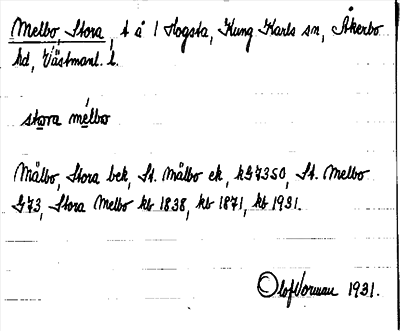 Melbo, Stora, t å 1 Hogsta, Kung Karls sn, Åkerbo
hd, Västmanl. l.
stora mélbo
Målbo, Stora bek, St. Målbo ek, kG7350, St. Melbo
G73, Stora Melbo kb 1838, kb 1871, kb 1931.
Olof 1931.